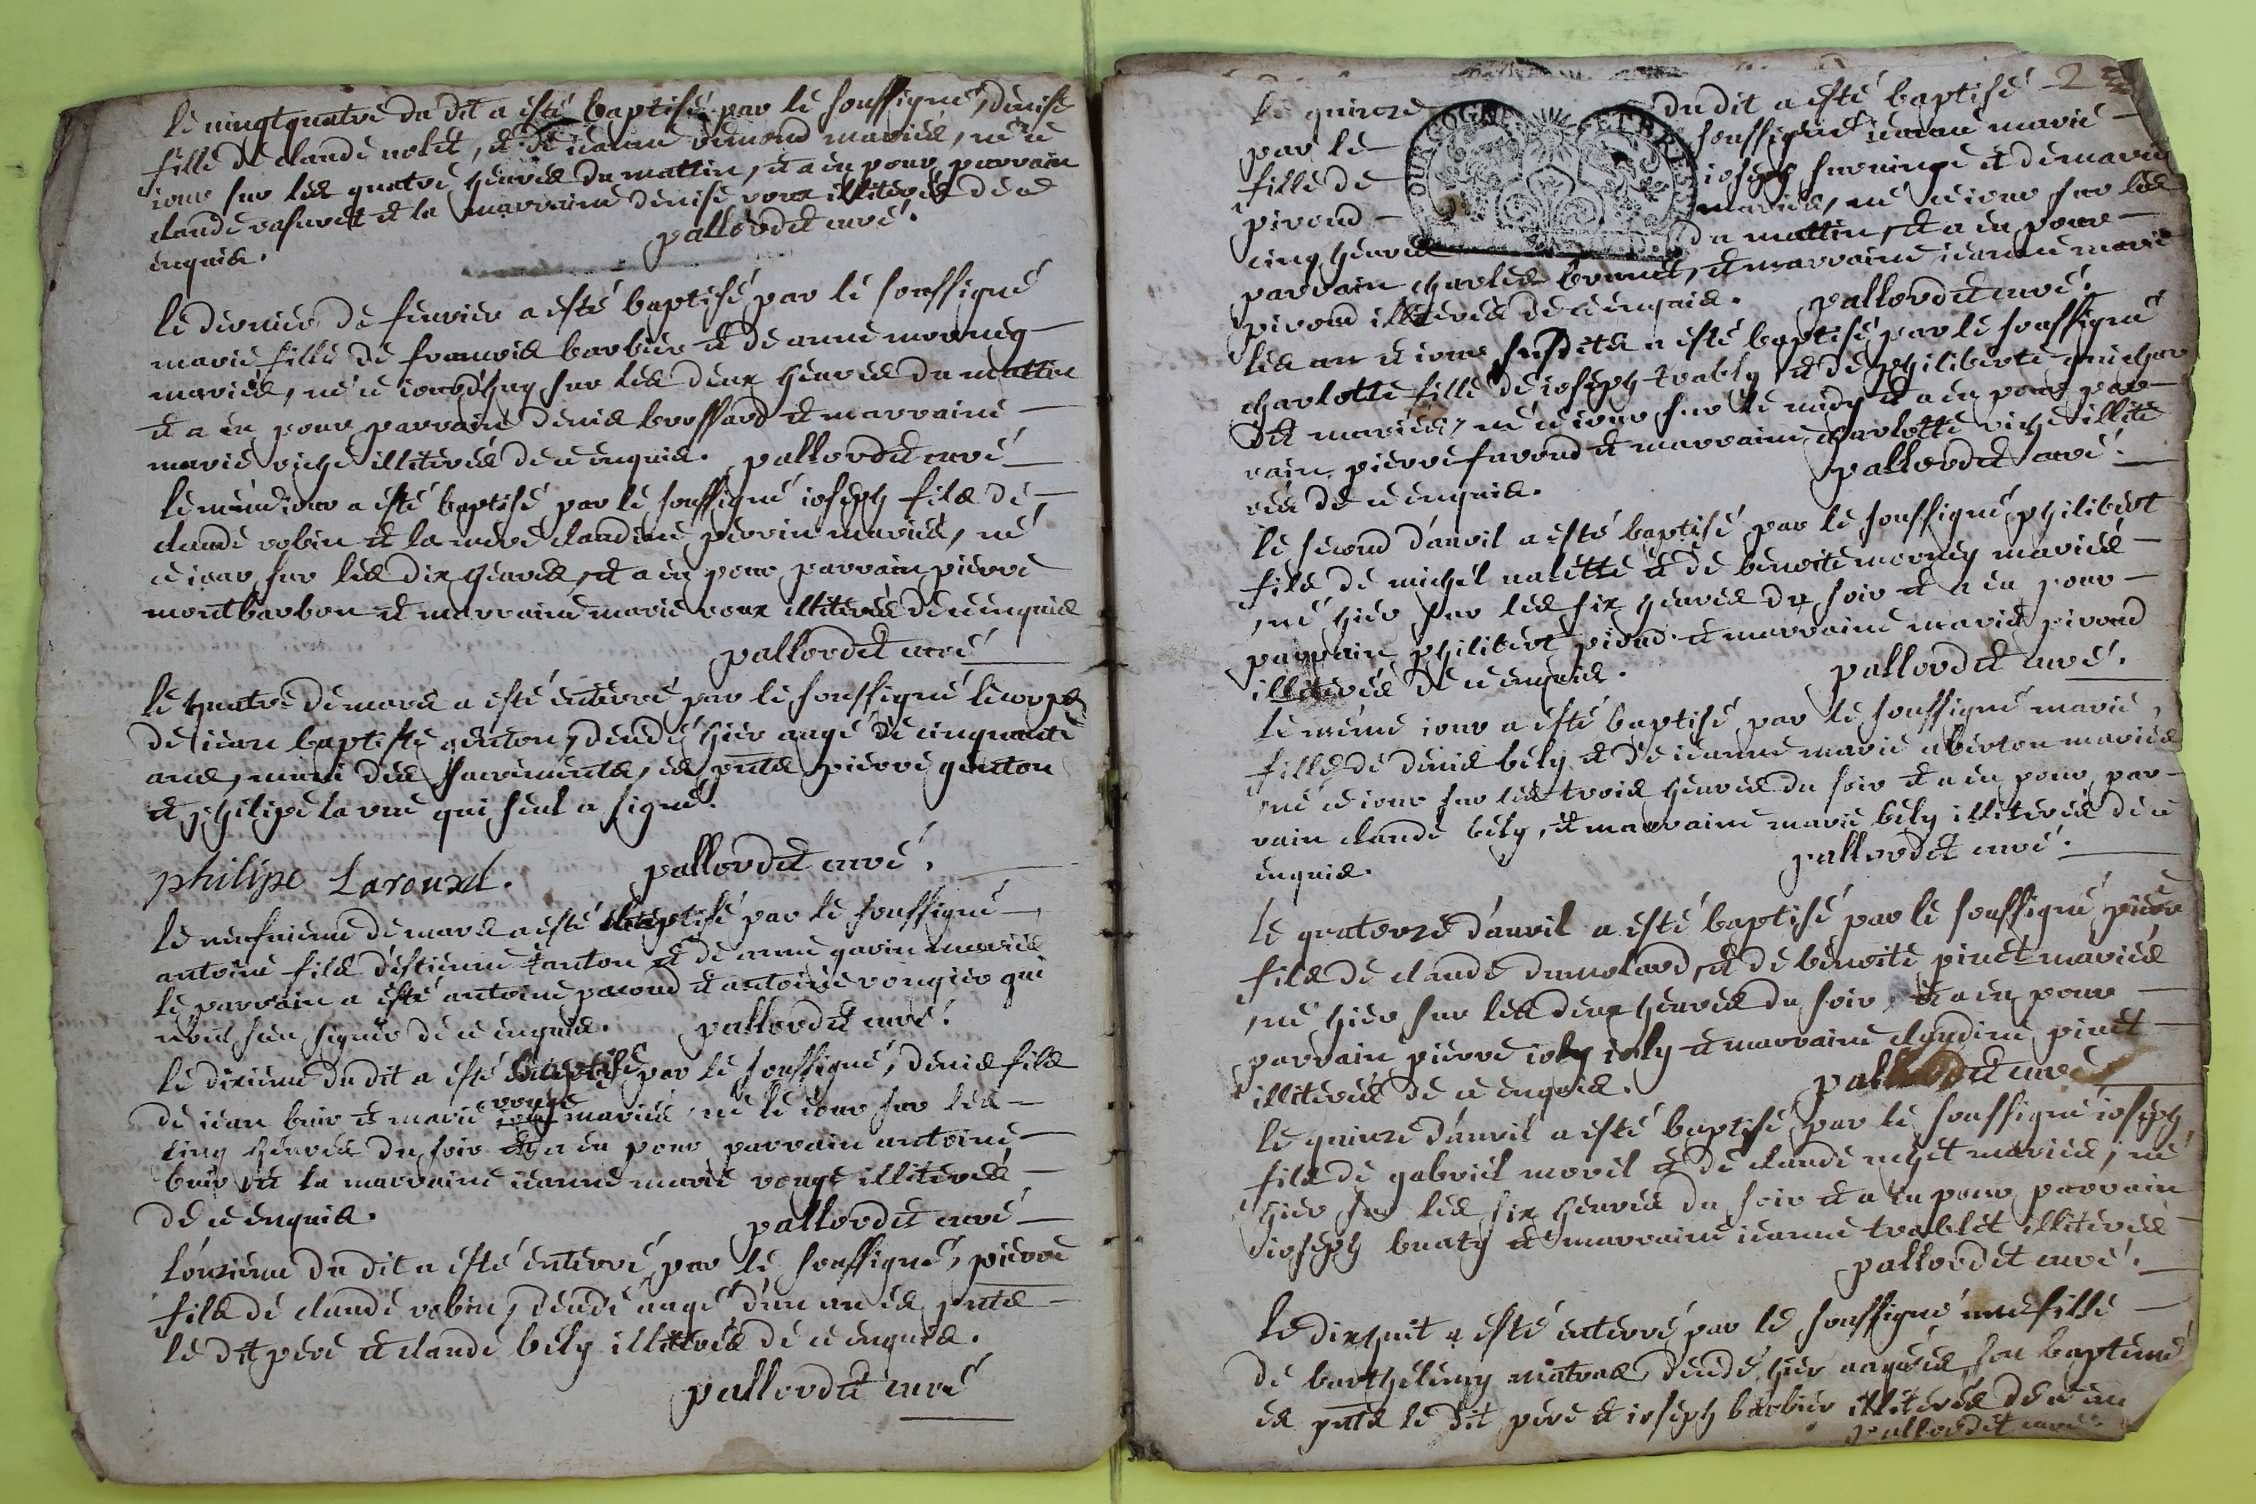 le vingtquatre du dit a esté baptisé par le soussigné, denise
fille de claude nolet, et de ieanne remond mariés, né ce
iour sur les quatre heures du mattin, et a eu pour parrain
claude et la marraine denise roux illiterés de ce
enquis. pallordet curé.
le dernier de feuvrier a esté baptisé par le soussigné
marie fille de francois barbier et de anne morney
mariés, né ce iourdhuy sur les deux heures du mattin
et a eu pour parrain denis brossard et marraine
marie riche illiterés de ce enquis. pallordet curé
le même iour a esté baptisé par le soussigné ioseph fils de
claude robin et la mere claudine perrin mariés, né
ce iour sur les dix heures, et a eu pour parrain pierre
montbarbon et marraine marie roux illiterés de ce enquis
pallordet curé
le quatre de mars a esté enterré par le soussigné le corps
de iean baptiste genton, decedé hier aagé de cinquante
ans, muni des sacrements, es pnts pierre genton
et philipe la rue qui seul a signé.
philipe Larouxd. pallordet curé.
le neufvieme de mars a esté baptisé par le soussigné
antoine fils destienne tanton et de anne gavin mariés
le parrain a esté antoine pacoud et antoine rongier qui
nont sceu signer de ce enquis. pallordet curé.
le dixieme du dit a esté baptisé par le soussigné, denis fils
de iean buir et marie rouge mariés né le iour sur les
cinq heures du soir et a eu pour parrain antoine
buir et la marraine ieanne marie rouge illiterés
de ce enquis. pallordet curé
lonzieme du dit a esté enterré par le soussigné, pierre
fils de claude robin, decedé aagé dun an es pnts
le dit pere et claude bely illiterés de ce enquis.
pallordet curé
2
le quinze du dit a esté baptisé
par le soussigné ieanne marie
fille de ioseph et de marie
pirond mariés, né ce iour sur les
cinq heures du mattin, et a eu pour
parrain charles brunet, et marraine ieanne marie
pirond illiterés de ce enquis. pallordet curé.
les an et iour susdits a esté baptisé par le soussigné
charlotte fille de ioseph trably et de philiberte guichar
det mariés, né ce iour sur le midy et a eu pour par
rain pierre favoud et marraine charlotte riche illite
rés de ce enquis. pallordet curé.
le second davril a esté baptisé par le soussigné philibert
fils de michel nalette et de benoite morney mariés
né hier sur les six heures du soir et a eu pour
parrain philibert pirod et marraine marie pirond
illiterés de ce enquis. pallordet curé.
le même iour a esté baptisé par le soussigné marie,
fille de denis bely et de ieanne marie aberton mariés
né ce iour sur les trois heures du soir et a eu pour par
rain claude bely, et marraine marie bely illiterés de ce
enquis. pallordet curé.
le quatorze davril a esté baptisé par le soussigné pierre
fils de claude dumolard, et de benoite pinet mariés
né hier sur les deux heures du soir, et a eu pour
parrain pierre ioly ioly et marraine claudine pinet
illiterés de ce enquis. pallordet curé
le quinze davril a esté baptisé par le soussigné ioseph
fils de gabriel morel et de claude mariés, né
hier sur les six heures du soir et a eu pour parrain
ioseph buaty et marraine ieanne trablet illiterés
pallordet curé.
le dixhuit a esté enterré par le soussigné une fille
de barthelemy matras decedé hier son baptême
es pnts le dit pere et ioseph barbier illiterés de ce en
pallordet curé.